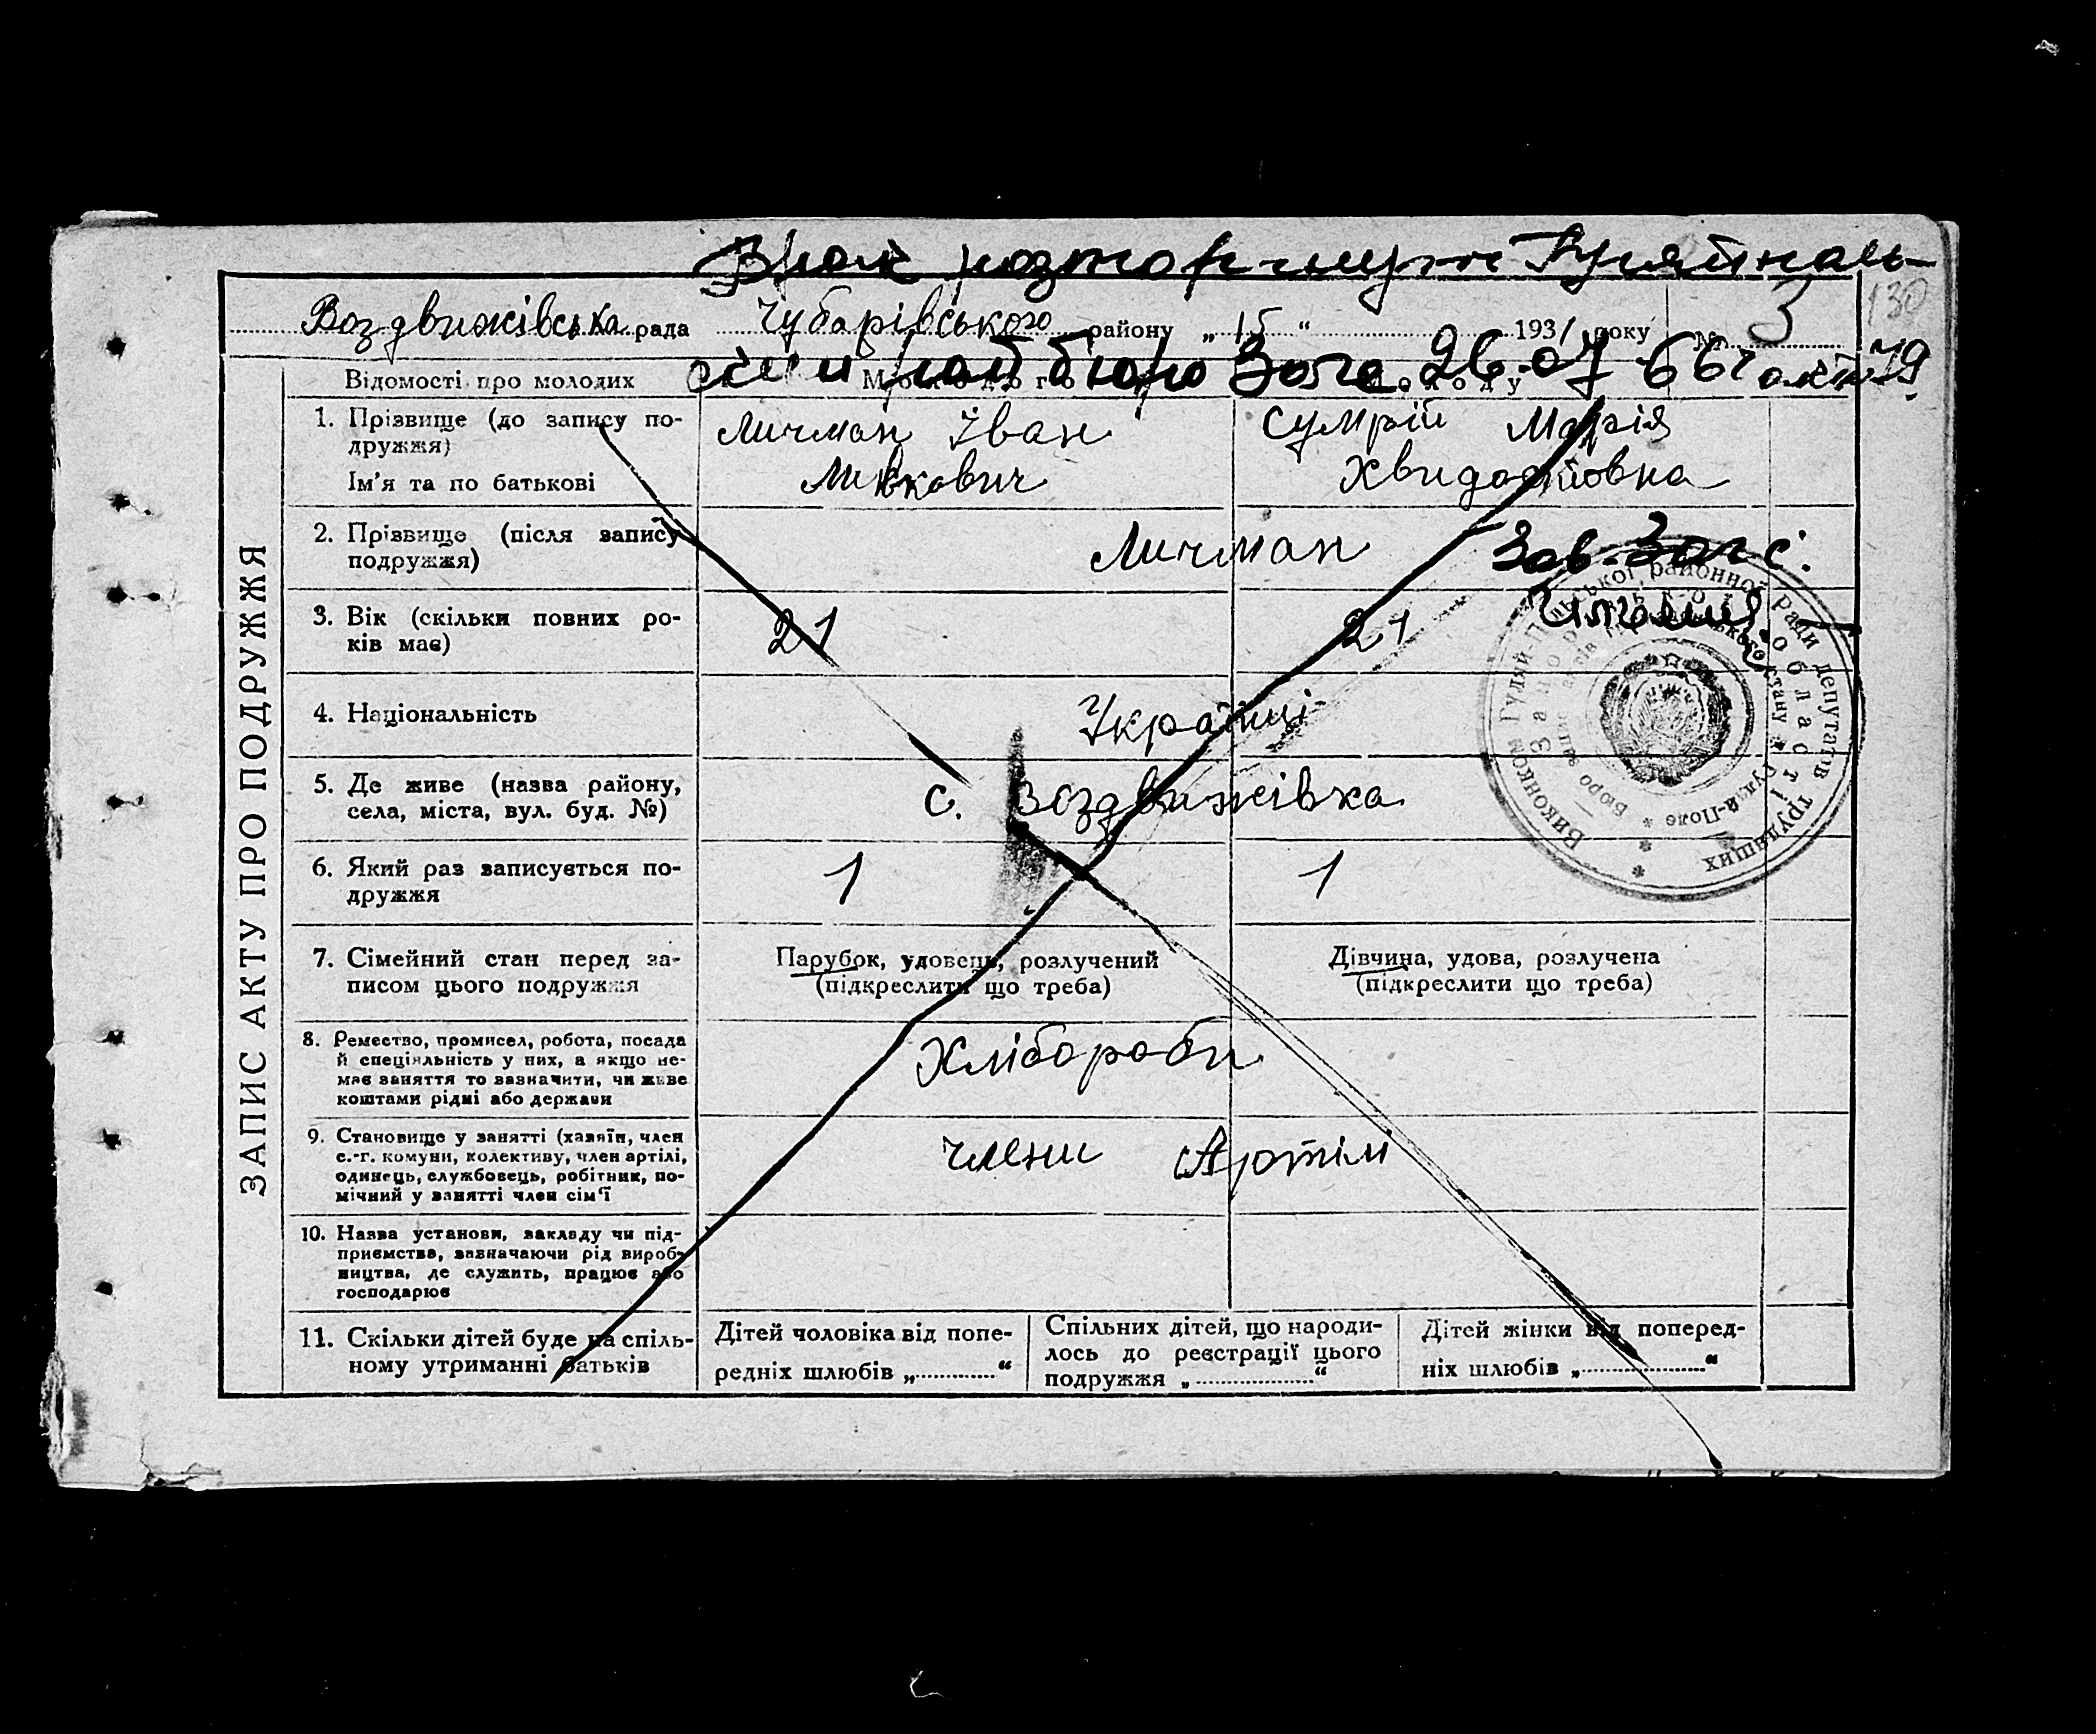 Брак розторгнут Гуляйполь-
130
Воздвижівська рада Чубарівського району „15“ 1931 року № 3
ским рай бюро Загс 26.07-66г акт 79
ЗАПИС АКТУ ПРО ПОДРУЖЖЯ
Відомості про молодих
1. Прізвище (до запису по-
дружжя)
Ім'я та по батькові
Личман Іван
Сумрій Марія
2. Прізвище (після запису
подружжя)
Личман
Зав. Загс:
3. Вік (скільки повних ро-
ків має)
21
21
4. Національність
Українці
5. Де живе (назва району,
села, міста, вул. буд. №)
с. Воздвижівка
6. Який раз записується по-
дружжя
1
1
7. Сімейний стан перед за-
писом цього подружжя
Парубок, удовець, розлучений
(підкреслити що треба)
Дівчина, удова, розлучена
(підкреслити що треба)
8. Ремество, промисел, робота, посада
й спеціяльність у них, а якщо не-
має заняття то зазначити, чи живе
коштами рідні або держави
Хлібороби
9. Становище у занятті (хазяїн, член
с.-г. комуни, колективу, член артілі,
одинець, службовець, робітник, по-
мічний у занятті член сім'ї
члени Артілі
10. Назва установи, закладу чи під-
приємства, зазначаючи рід вироб-
ництва, де служить, працює або
господарює
11. Скільки дітей буде на спіль-
ному утриманні батьків
Дітей чоловіка від попе-
редніх шлюбів „ “
Спільних дітей, що народи-
лось до реєстрації цього
подружжя „ “
Дітей жінки від поперед-
ніх шлюбів „ “
Виконком Гуляй-Пільської районної ради депутатів трудящих
Запорізької області